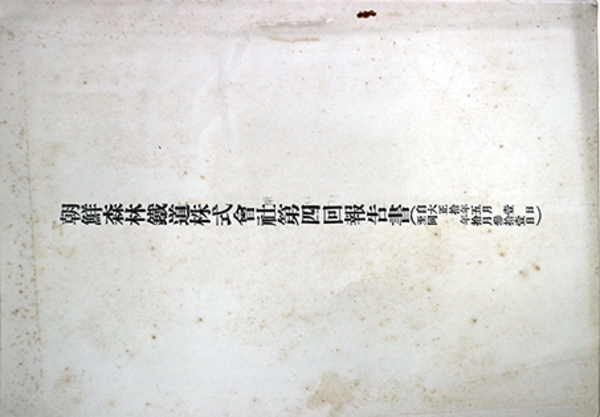 朝鮮森林鐵道株式會社第四回報告書
(自大正拾年五月壹日
至同拾年拾月參拾壹日)